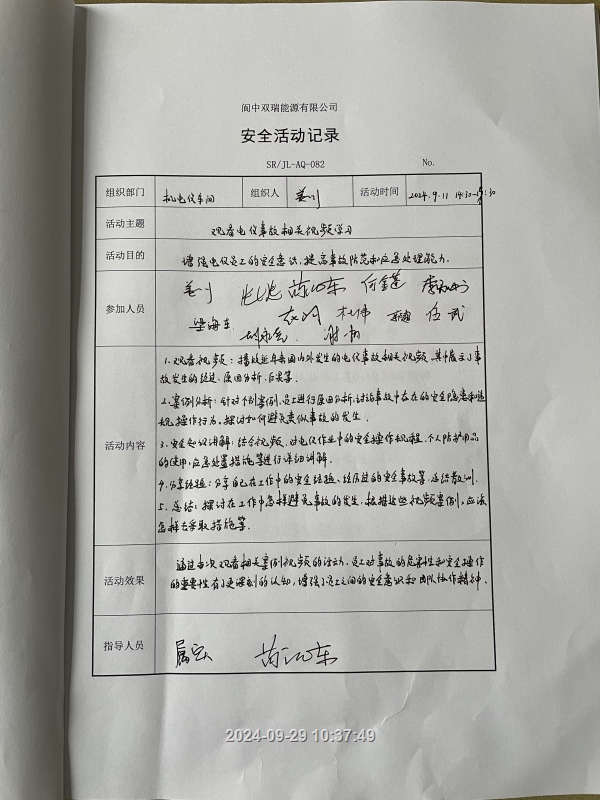 阆中双瑞能源有限公司
安全活动记录
SR/JL-AQ-082 No.
组织部门 机电仪车间 组织人 活动时间 2024.9.11 14:30-15:30
活动主题 观看电仪事故相关视频学习
活动目的 增强电仪员工的安全意识,提高事故防范和应急处理能力.
参加人员
梁海生 杜伟 伍武
活动内容
1.观看视频:播放近年来国内外发生的电仪事故相关视频,其中展示了事
故发生的经过、原因分析、后果等.
2.案例分析:针对个别案例,员工进行原因分析,讨论事故中存在的安全隐患和违
规操作行为,探讨如何避免类似事故的发生.
3.安全知识讲解:结合视频,对电仪作业中的安全操作规程、个人防护用品
的使用,应急处置措施等进行详细讲解.
4.分享经验:分享自己在工作中的安全经验、经历过的安全事故等,总结教训.
5.总结:探讨在工作中怎样避免事故的发生,根据这些视频案例,应该
怎样去采取措施等.
活动效果
通过本次观看相关案例视频的活动,员工对事故的危害性和安全操作
的重要性有了更深刻的认知,增强了员工之间的安全意识和团队协作精神.
指导人员
2024-09-29 10:37:49